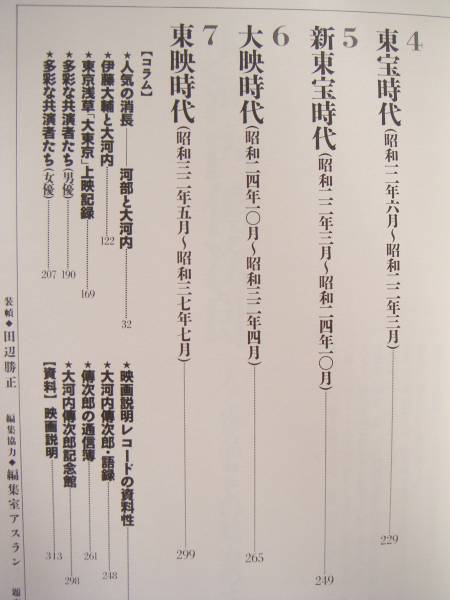 4 東宝時代(昭和一二年六月〜昭和二二年三月) 229
5 新東宝時代(昭和二二年三月〜昭和二四年一〇月) 249
6 大映時代(昭和二四年一〇月〜昭和三二年四月) 265
7 東映時代(昭和三二年五月〜昭和三七年七月) 299
【コラム】
★人気の消長——河部と大河内 32
★伊藤大輔と大河内 122
★東京浅草「大東京」上映記録 169
★多彩な共演者たち(男優) 190
★多彩な共演者たち(女優) 207
★映画説明レコードの資料性
★大河内傳次郎・語録 248
★傳次郎の通信簿 261
★大河内傳次郎記念館 298
【資料】映画説明 313
装幀◆田辺勝正 編集協力◆編集室アスラン 題